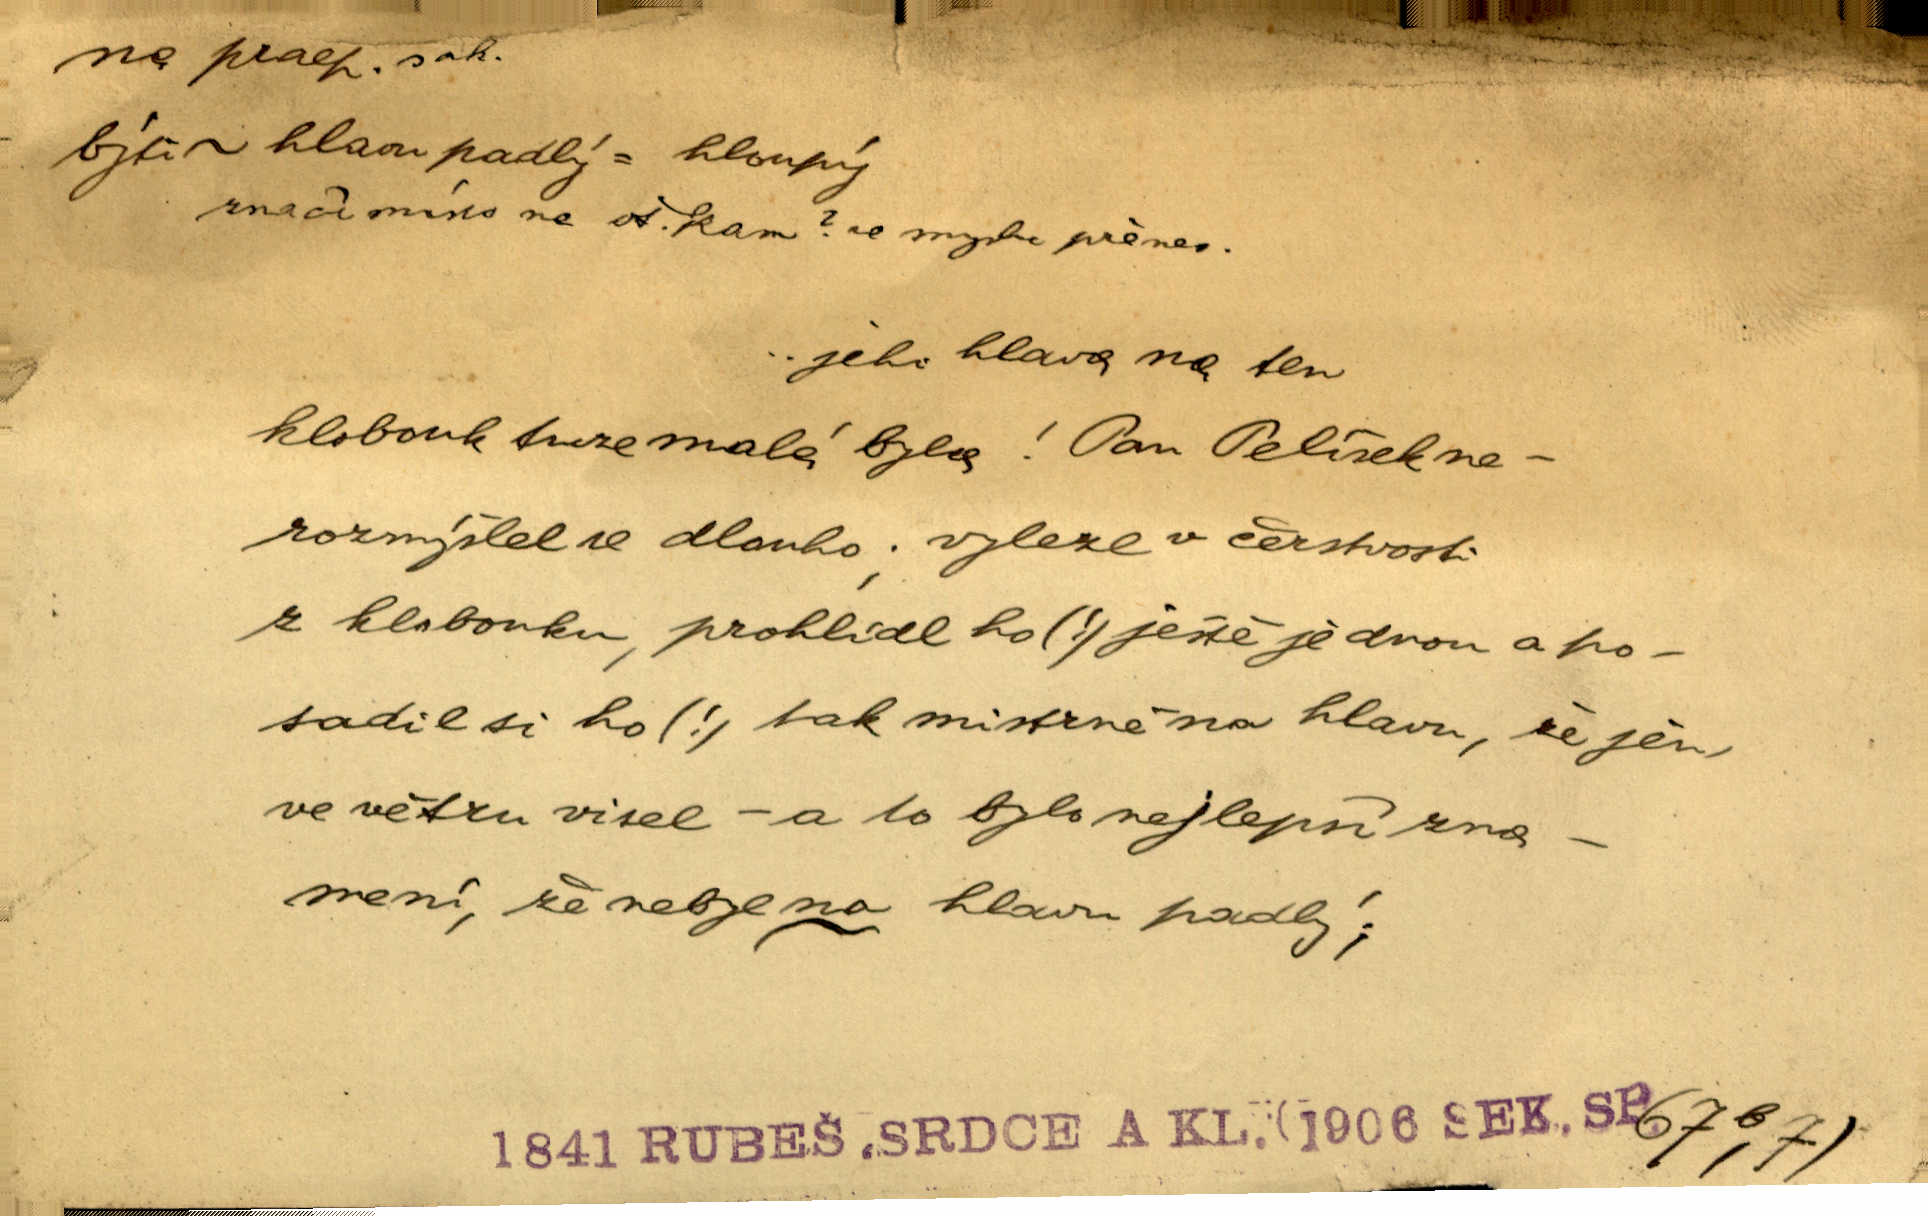 na praep. s ak.
býti ~ hlavu padlý = hloupý
značí místo na ot. kam? ve smyslu přenes.
.. jeho hlava na ten
klobouk tuze malá byla! Pan Pelíšek ne-
rozmýšlel se dlouho; vylezl v čerstvosti
z klobouku, prohlídl ho (!) ještě jednou a po-
sadil si ho (!) tak mistrně na hlavu, že jen
ve větru visel - a to bylo nejlepší zna-
mení, že nebyl na hlavu padlý;
1841 RUBEŠ.SRDCE A KL.(1906 SEK. SP. 67b,7)